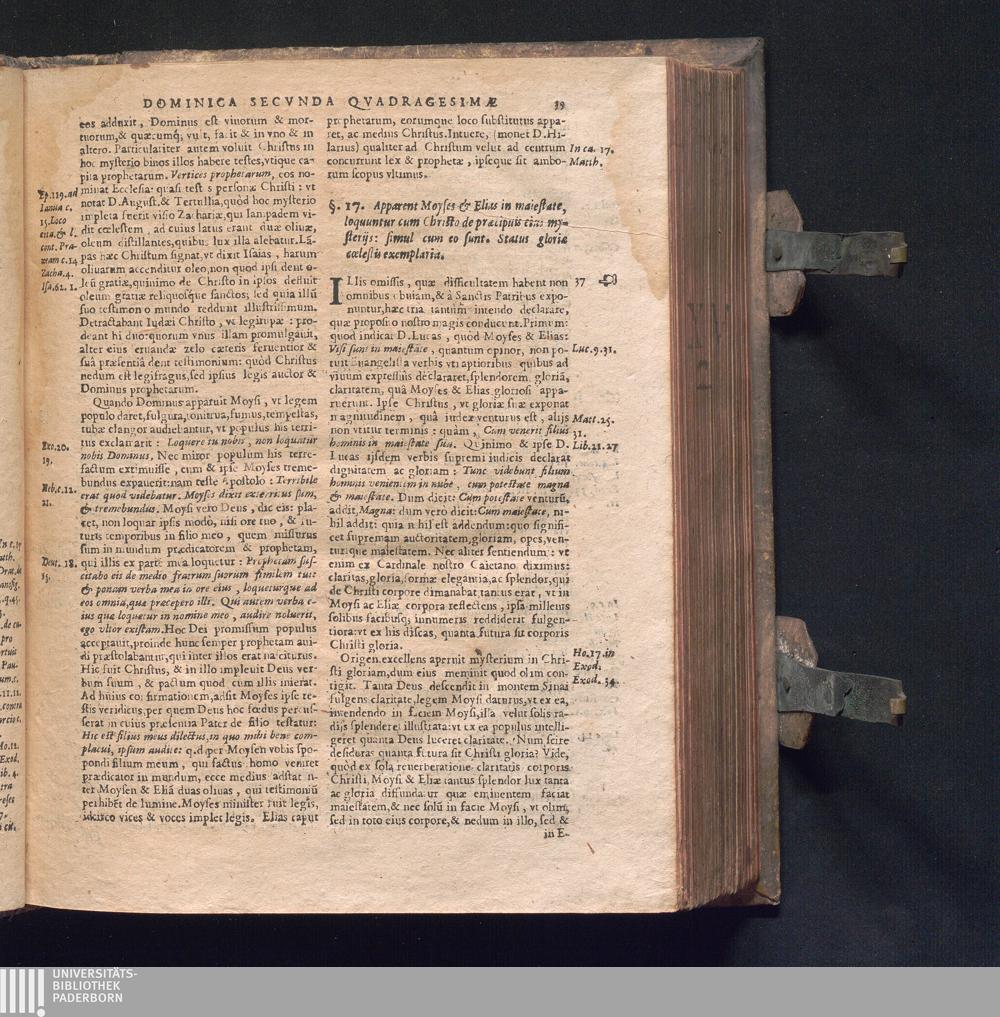 DOMINICA SECVNDA QVADRAGESIMÆ 39
eos adduxit, Dominus est viuorum & mor-
tuorum, & quæcumq́; vult, facit & in vno & in
altero. Particulariter autem voluit Christus in
hoc mysterio binos illos habere testes, vtique ca-
pita prophetarum. Vertices prophetarum, eos no-
minat Ecclesia quasi testes personæ Christi: vt
notat D. August. & Tertullia, quòd hoc mysterio
impleta fuerit visio Zachariæ, qui lampadem vi-
dit cœlestem, ad cuius latus erant duæ oliuæ,
oleum distillantes, quibus lux illa alebatur. Lā-
pas hæc Christum signat, vt dixit Isaias, harum
oliuarum accenditur oleo, non quod ipsi dent o-
leū gratiæ, quinimo de Christo in ipsos defluit
oleum gratiæ reliquosque sanctos; sed quia illū
suo testimonio mundo reddunt illustrissimum.
Detractabant Iudæi Christo, vt legirupæ: pro-
deant hi duo: quorum vnus illam promulgauit,
alter eius eruandæ zelo cæteris feruentior &
suâ præsentiâ dent testimonium: quòd Christus
nedum est legifragus, sed ipsius legis auctor &
Dominus prophetarum.
Quando Dominus apparuit Moysi, vt legem
populo daret, fulgura, tonitrua, fumus, tempestas,
tubæ clangor audiebantur, vt populus his terri-
tus exclamarit: Loquere tu nobis, non loquatur
nobis Dominus. Nec miror populum his terre-
factum extimuisse, cum & ipse Moyses treme-
bundus expauerit: nam teste Apostolo: Terribile
erat quod videbatur. Moyses dixit exterritus sum,
& tremebundus. Moysi vero Deus, dic eis: pla-
cet, non loquar ipsis modò, nisi ore tuo, & fu-
turis temporibus in filio meo, quem missurus
sum in mundum prædicatorem & prophetam,
qui illis ex parte mea loquetur: Prophetam sus-
citabo eis de medio fratrum suorum similem tui:
& ponam verba mea in ore eius, loqueturque ad
eos omnia, quæ præcepero illi. Qui autem verba e-
ius quæ loquetur in nomine meo, audire noluerit,
ego vltor existam. Hoc Dei promissum populus
acceptauit, proinde hunc semper prophetam aui-
di præstolabantur, qui inter illos erat nasciturus.
Hic fuit Christus, & in illo impleuit Deus ver-
bum suum, & pactum quod cum illis inierat.
Ad huius confirmationem, adsit Moyses ipse te-
stis veridicus, per quem Deus hoc fœdus percus-
serat in cuius præsentia Pater de filio testatur:
Hic est filius meus dilectus, in quo mihi bene com-
placui, ipsum audite: q.d. per Moysen vobis spo-
pondi filium meum, qui factus homo veniret
prædicator in mundum, ecce medius adstat in-
ter Moysen & Eliā duas oliuas, qui testimoniū
perhibēt de lumine. Moyses minister fuit legis,
idcirco vices & voces implet legis. Elias caput
Ep. 119. ad
Ianua c.
15. Loco
cont. Pra-
xeam c. 14
Zacha. 4.
Isa. 62. 1.
Exo. 20.
19.
Heb. c. 12.
21.
Deut. 18.
15.
prophetarum, eorumque loco substitutus appa-
ret, ac medius Christus. Intuere, (monet D. Hi-
larius) qualiter ad Christum velut ad centrum
concurrunt lex & prophetæ, ipseque sit ambo-
rum scopus vltimus.
In ca. 17.
Matth.
§. 17. Apparent Moyses & Elias in maiestate,
loquuntur cum Christo de præcipuis eius my-
sterijs: simul cum eo sunt. Status gloriæ
cœlestis exemplaria.
Illis omissis, quæ difficultatem habent non 37
omnibus obuiam, & à Sanctis Patribus expo-
nuntur, hæc tria tantùm intendo declarare,
quæ proposito nostro magis conducent. Primum:
quod indicat D. Lucas, quòd Moyses & Elias:
Visi sunt in maiestate, quantum opinor, non po-
tuit Euangelista verbis vti aptioribus quibus ad
viuum expressius declararet, splendorem gloriā,
claritatem, quâ Moyses & Elias gloriosi appa-
ruerunt. Ipse Christus, vt gloriæ suæ exponat
magnitudinem, quâ iudex venturus est, alijs
non vtitur terminis: quàm, Cum venerit filius
hominis in maiestate sua. Quinimo & ipse D.
Lucas ijsdem verbis supremi iudicis declarat
dignitatem ac gloriam: Tunc videbunt filium
hominis venientem in nube, cum potestate magna
& maiestate. Dum dicit: Cum potestate venturū,
addit, Magna: dum verò dicit: Cum maiestate, ni-
hil addit: quia nihil est addendum: quo signifi-
cet supremam auctoritatem, gloriam, opes, ven-
turique maiestatem. Nec aliter sentiendum: vt
enim ex Cardinale nostro Caietano diximus:
claritas, gloria, formæ elegantia, ac splendor, qui
de Christi corpore dimanabat tantus erat, vt in
Moysi ac Eliæ corpora reflectens, ipsa millenis
solibus facibusq; innumeris reddiderit fulgen-
tiora: vt ex his discas, quanta futura sit corporis
Christi gloria.
Origen. excellens aperuit mysterium in Chri-
sti gloriam, dum eius meminit quod olim con-
tigit. Tanta Deus descendit in montem Sinai
fulgens claritate, legem Moysi daturus, vt ex ea,
intendendo in faciem Moysi, illa velut solis ra-
dijs splendere illustrata: vt ex ea populus intelli-
geret quanta Deus luceret claritate. Num scire
desideras quanta futura sit Christi gloria? Vide,
quòd ex sola reuerberatione claritatis corporis
Christi, Moysi & Eliæ tantus splendor lux tanta
ac gloria diffundatur quæ eminentem faciat
maiestatem, & nec solū in facie Moysi, vt olim,
sed in toto eius corpore, & nedum in illo, sed &
in E-
Luc. 9. 31.
Matt. 25.
31.
Lib. 21. 27
Ho. 17. in
Exod.
Exod. 34.
UNIVERSITÄTS-
BIBLIOTHEK
PADERBORN